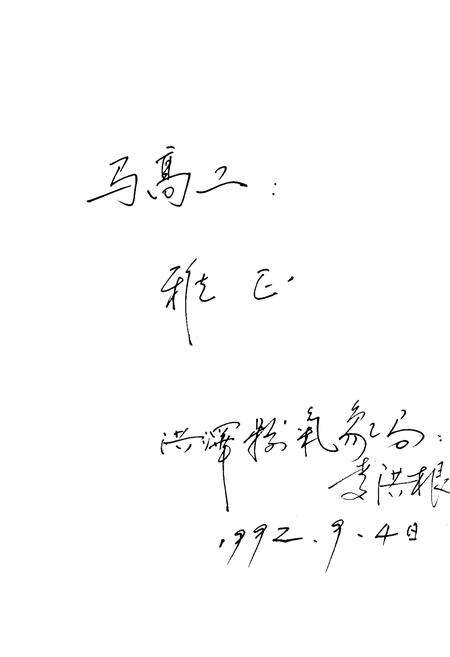 马高工:
雅正
洪泽县气象局:
李洪根
1992.9.4日